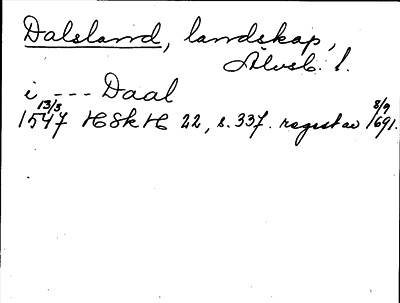 Dalsland, landskap,
Älvsb. l.
i --- Daal
13/3 1547 HSkH 22, s. 337. regest av 8/9 1691.